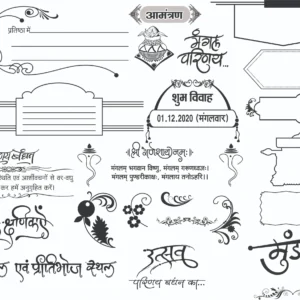 आमंत्रण
प्रतिष्ठा में
मंगल
परिणय...
शुभ विवाह
01.12.2020 (मंगलवार)
श्री गणेशाय नमः
मंगलम भगवान विष्णु, मंगलम् गरूड़ध्वजः
मंगलम् पुण्डरीकाक्षः, मंगलम तनोहरिः।
एवं आशीर्वचनों से वर-वधु
कर हमें अनुग्रहित करें।
उत्सव
परिणय बंधन का...
एवं प्रीतिभोज स्थल